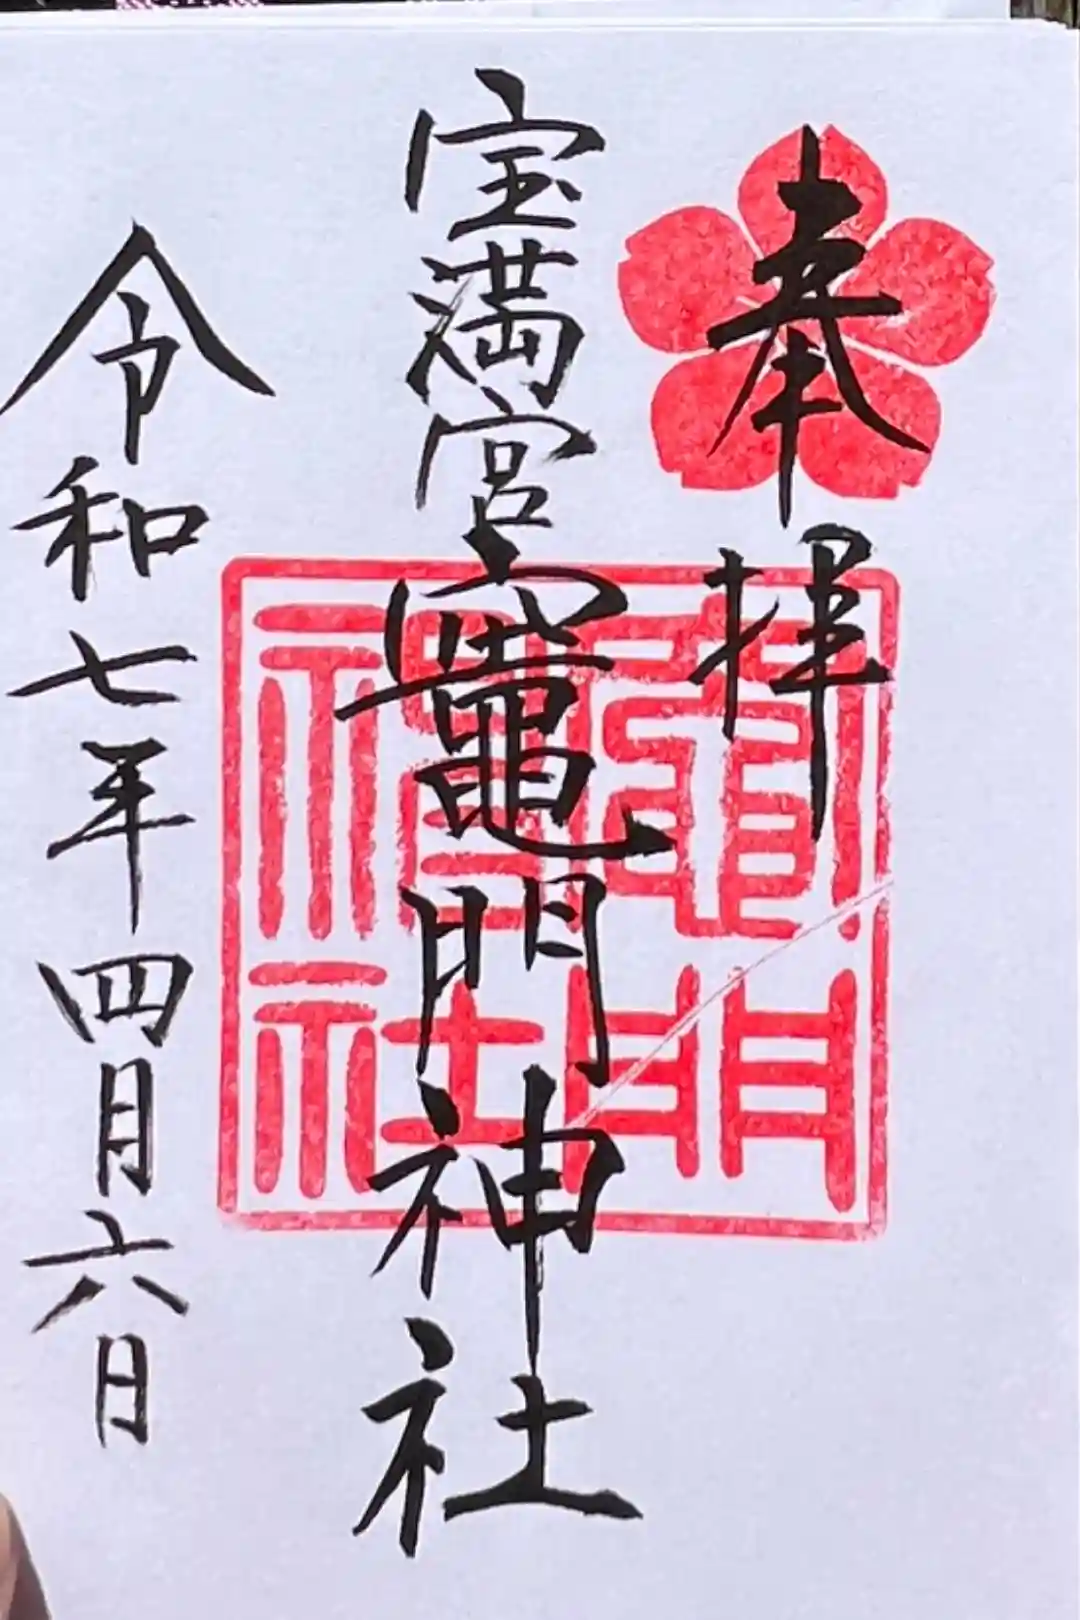 奉拝
宝満宮竈門神社
竈門神社
令和七年四月六日